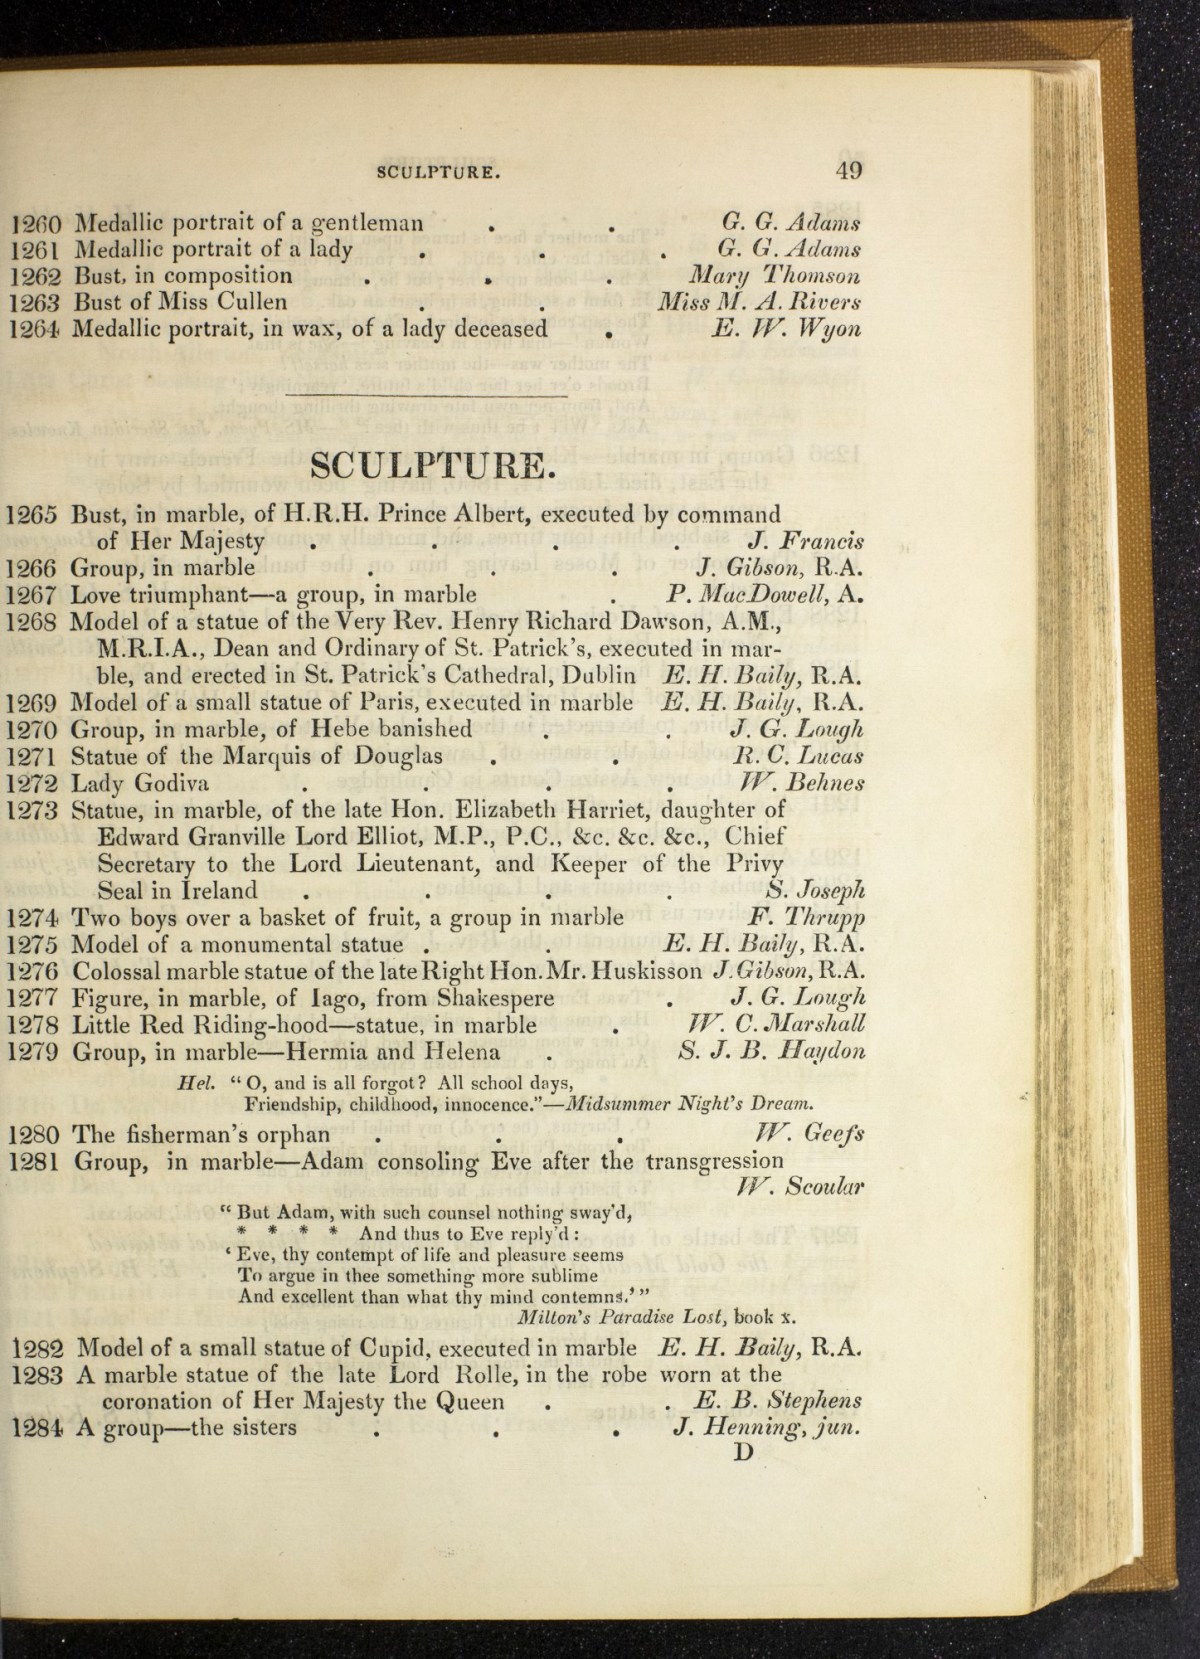 SCULPTURE. 49
1260 Medallic portrait of a gentleman . . G. G. Adams
1261 Medallic portrait of a lady . . . G. G. Adams
1262 Bust, in composition . . . Mary Thomson
1263 Bust of Miss Cullen . . Miss M. A. Rivers
1264 Medallic portrait, in wax, of a lady deceased . E. W. Wyon
SCULPTURE.
1265 Bust, in marble, of H.R.H. Prince Albert, executed by command
of Her Majesty . . . . J. Francis
1266 Group, in marble . . . J. Gibson, R.A.
1267 Love triumphant—a group, in marble . P. MacDowell, A.
1268 Model of a statue of the Very Rev. Henry Richard Dawson, A.M.,
M.R.I.A., Dean and Ordinary of St. Patrick's, executed in mar-
ble, and erected in St. Patrick's Cathedral, Dublin E. H. Baily, R.A.
1269 Model of a small statue of Paris, executed in marble E. H. Baily, R.A.
1270 Group, in marble, of Hebe banished . . J. G. Lough
1271 Statue of the Marquis of Douglas . . R. C. Lucas
1272 Lady Godiva . . . . W. Behnes
1273 Statue, in marble, of the late Hon. Elizabeth Harriet, daughter of
Edward Granville Lord Elliot, M.P., P.C., &c. &c. &c., Chief
Secretary to the Lord Lieutenant, and Keeper of the Privy
Seal in Ireland . . . . S. Joseph
1274 Two boys over a basket of fruit, a group in marble F. Thrupp
1275 Model of a monumental statue . . E. H. Baily, R.A.
1276 Colossal marble statue of the late Right Hon. Mr. Huskisson J. Gibson, R.A.
1277 Figure, in marble, of Iago, from Shakespere . J. G. Lough
1278 Little Red Riding-hood—statue, in marble . W. C. Marshall
1279 Group, in marble—Hermia and Helena . S. J. B. Haydon
Hel. “ O, and is all forgot? All school days,
Friendship, childhood, innocence.”—Midsummer Night's Dream.
1280 The fisherman's orphan . . . W. Geefs
1281 Group, in marble—Adam consoling Eve after the transgression
W. Scoular
“ But Adam, with such counsel nothing sway'd,
* * * * And thus to Eve reply'd :
‘ Eve, thy contempt of life and pleasure seems
To argue in thee something more sublime
And excellent than what thy mind contemns.’ ”
Milton's Paradise Lost, book x.
1282 Model of a small statue of Cupid, executed in marble E. H. Baily, R.A.
1283 A marble statue of the late Lord Rolle, in the robe worn at the
coronation of Her Majesty the Queen . . E. B. Stephens
1284 A group—the sisters . . . J. Henning, jun.
D